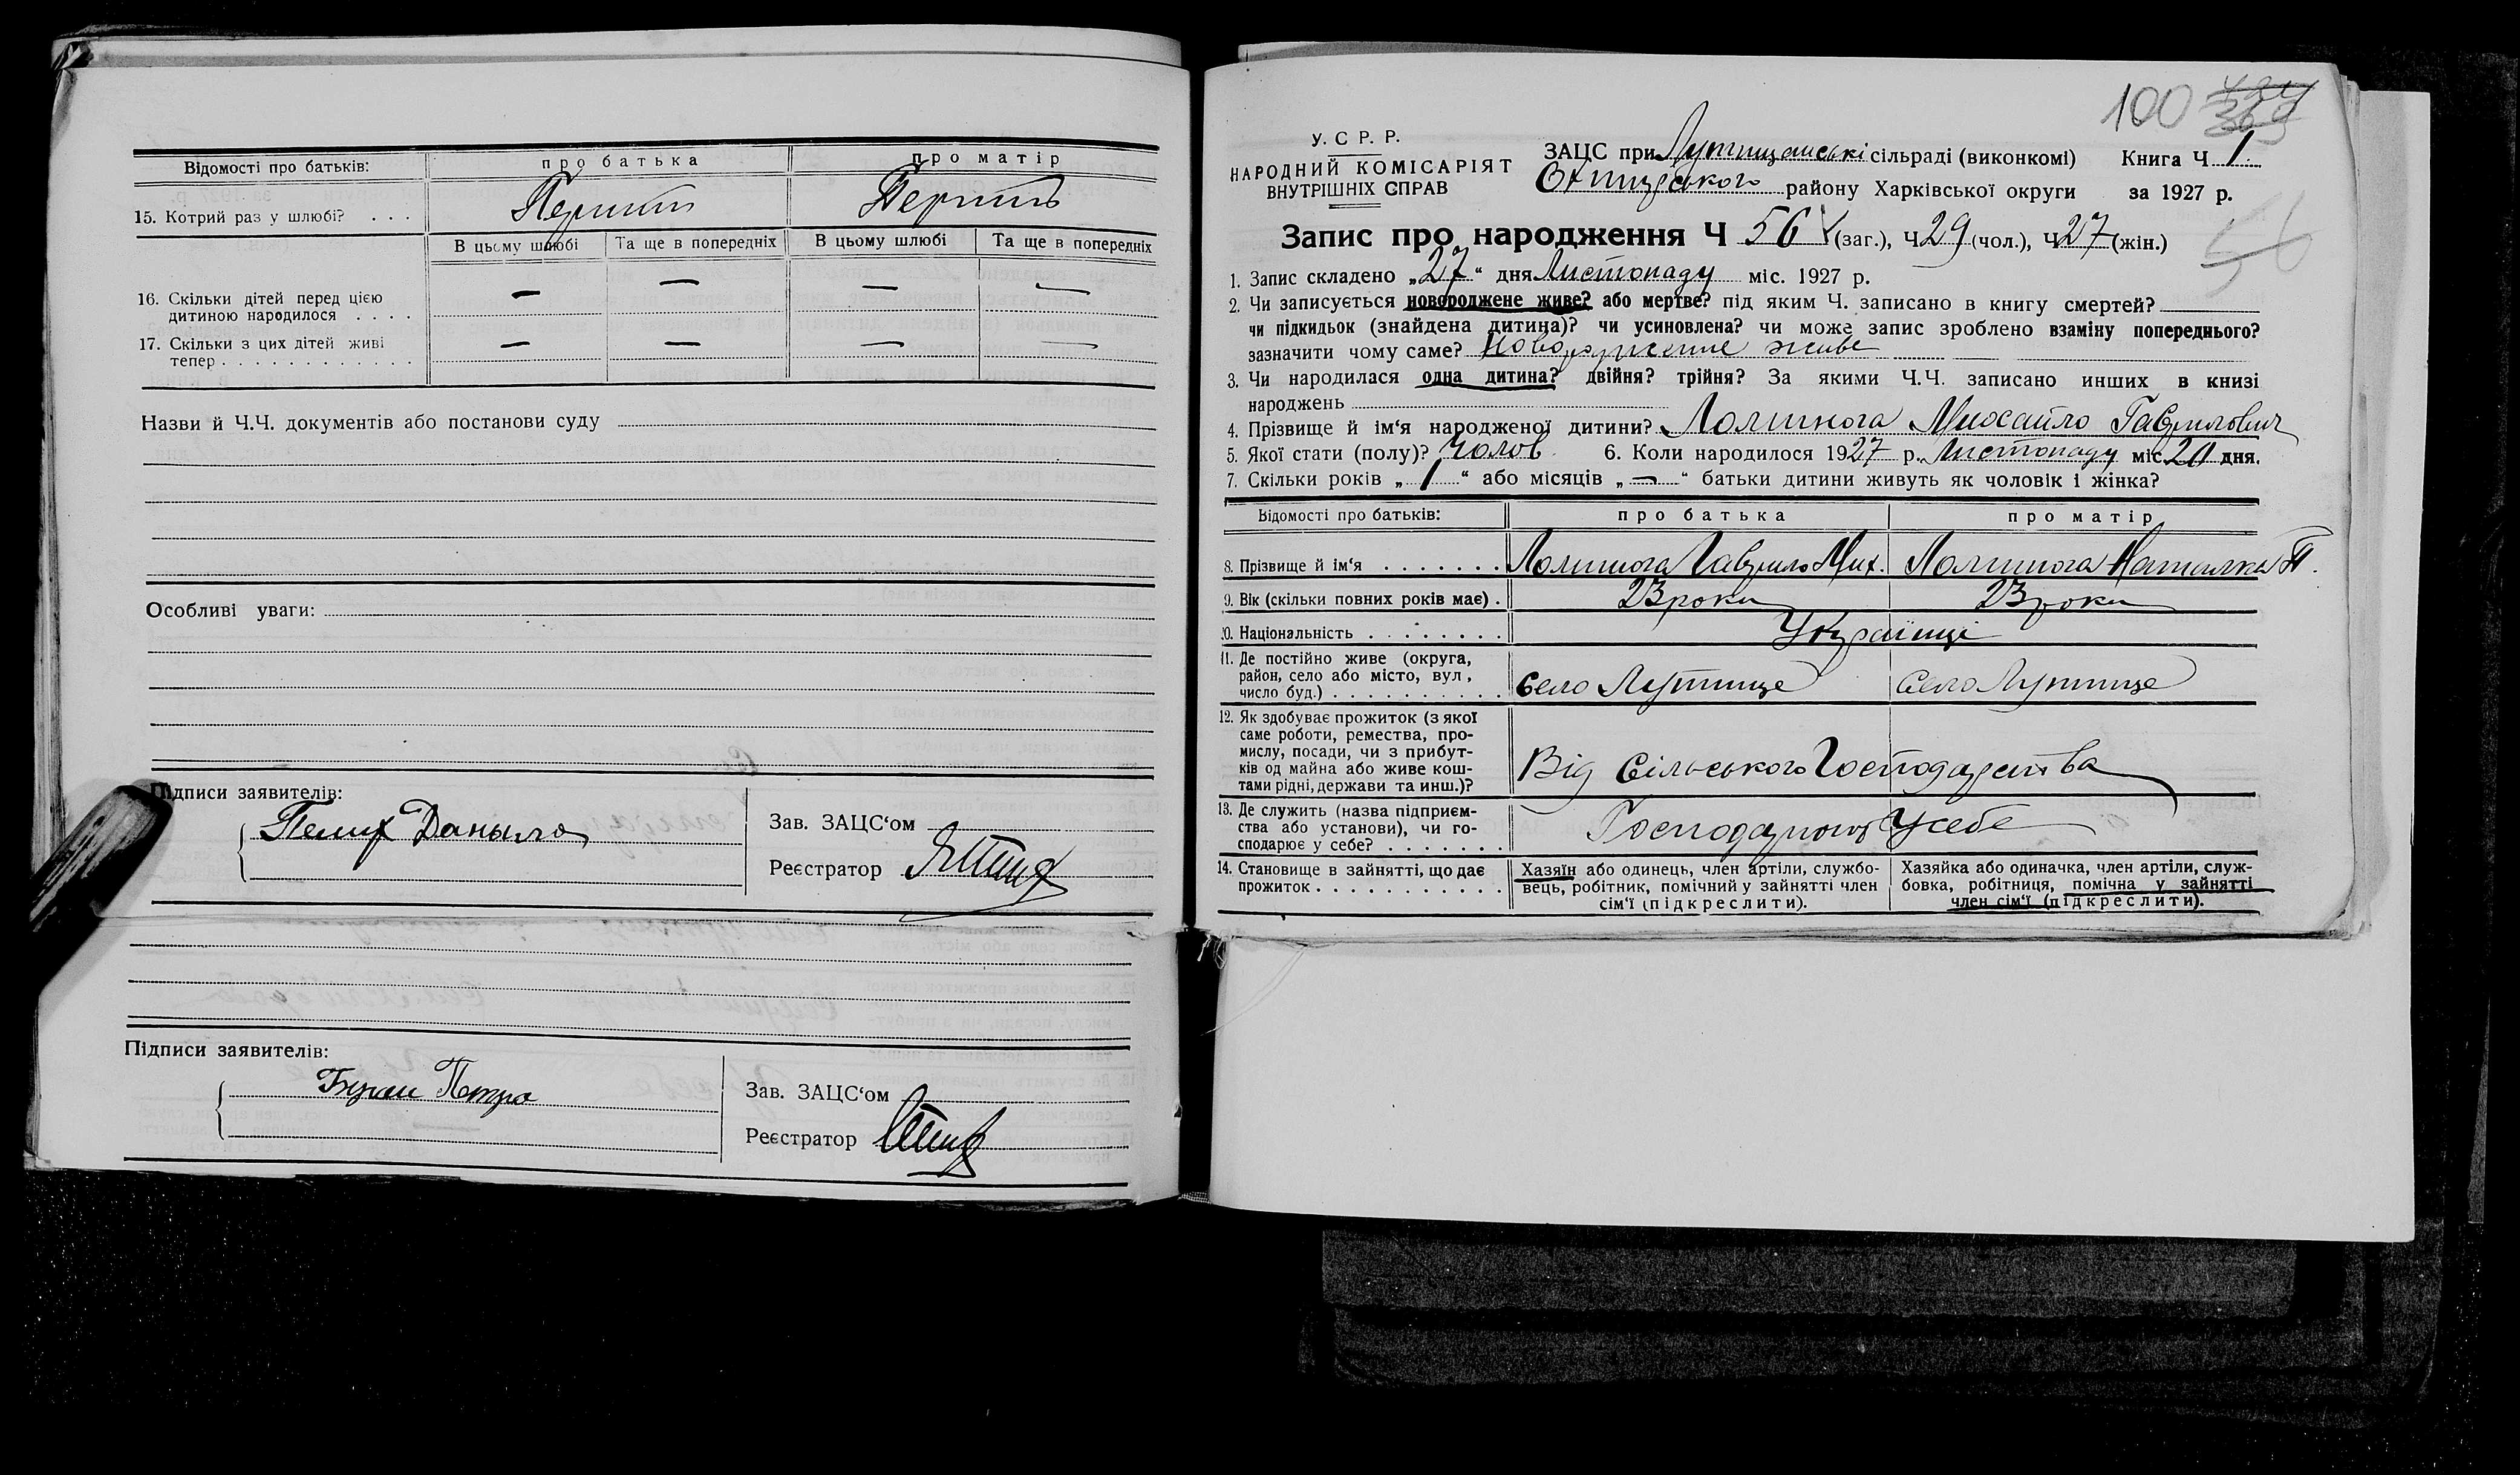 Відомості про батьків: про батька про матір
15. Котрий раз у шлюбі? . . .
В цьому шлюбі Та ще в попередніх В цьому шлюбі Та ще в попередніх
16. Скільки дітей перед цією
дитиною народилося . . . . — — — —
17. Скільки з цих дітей живі
тепер . . . . . . . . . . . . — — — —
Назви й Ч.Ч. документів або постанови суду
Особливі уваги:
Підписи заявителів:
Даныло
Зав. ЗАЦС‘ом
Реєстратор
Підписи заявителів:
Петро
Зав. ЗАЦС‘ом
Реєстратор
100
У. С. Р. Р.
НАРОДНИЙ КОМІСАРІЯТ
ВНУТРІШНІХ СПРАВ
ЗАЦС при Лутищанські сільраді (виконкомі) Книга Ч 1.
району Харківської округи за 1927 р.
Запис про народження Ч 56 (заг.), Ч 29 (чол.), Ч 27 (жін.)
56
1. Запис складено „27“ дня Листопаду міс. 1927 р.
2. Чи записується новороджене живе? або мертве? під яким Ч. записано в книгу смертей?
чи підкидьок (знайдена дитина)? чи усиновлена? чи може запис зроблено взаміну попереднього?
зазначити чому саме? живе
3. Чи народилася одна дитина? двійня? трійня? За якими Ч.Ч. записано инших в книзі
народжень
4. Прізвище й ім‘я народженої дитини? Михайло Гаврилович
5. Якої стати (полу)? Чолов 6. Коли народилося 1927 р. Листопаду міс 20 дня.
7. Скільки років „1“ або місяців „—“ батьки дитини живуть як чоловік і жінка?
Відомості про батьків: про батька про матір
8. Прізвище й ім‘я . . . . . . . Гаврило Мих. Наталка П.
9. Вік (скільки повних років має) . 23 роки 23 роки
10. Національність . . . . . . . . Українці
11. Де постійно живе (округа,
район, село або місто, вул,
число буд.) . . . . . . . . . . село Лутище село Лутище
12. Як здобуває прожиток (з якої
саме роботи, ремества, про-
мислу, посади, чи з прибут-
ків од майна або живе кош-
тами рідні, держави та инш.)? Від Сільського Господарства
13. Де служить (назва підприєм-
ства або установи), чи го-
сподарює у себе? . . . . . . . Господарюють У себе
14. Становище в зайнятті, що дає
прожиток . . . . . . . . . . .
Хазяїн або одинець, член артіли, службо-
вець, робітник, помічний у зайнятті член
сім‘ї (підкреслити).
Хазяйка або одиначка, член артіли, служ-
бовка, робітниця, помічна у зайнятті
член сім‘ї (підкреслити).